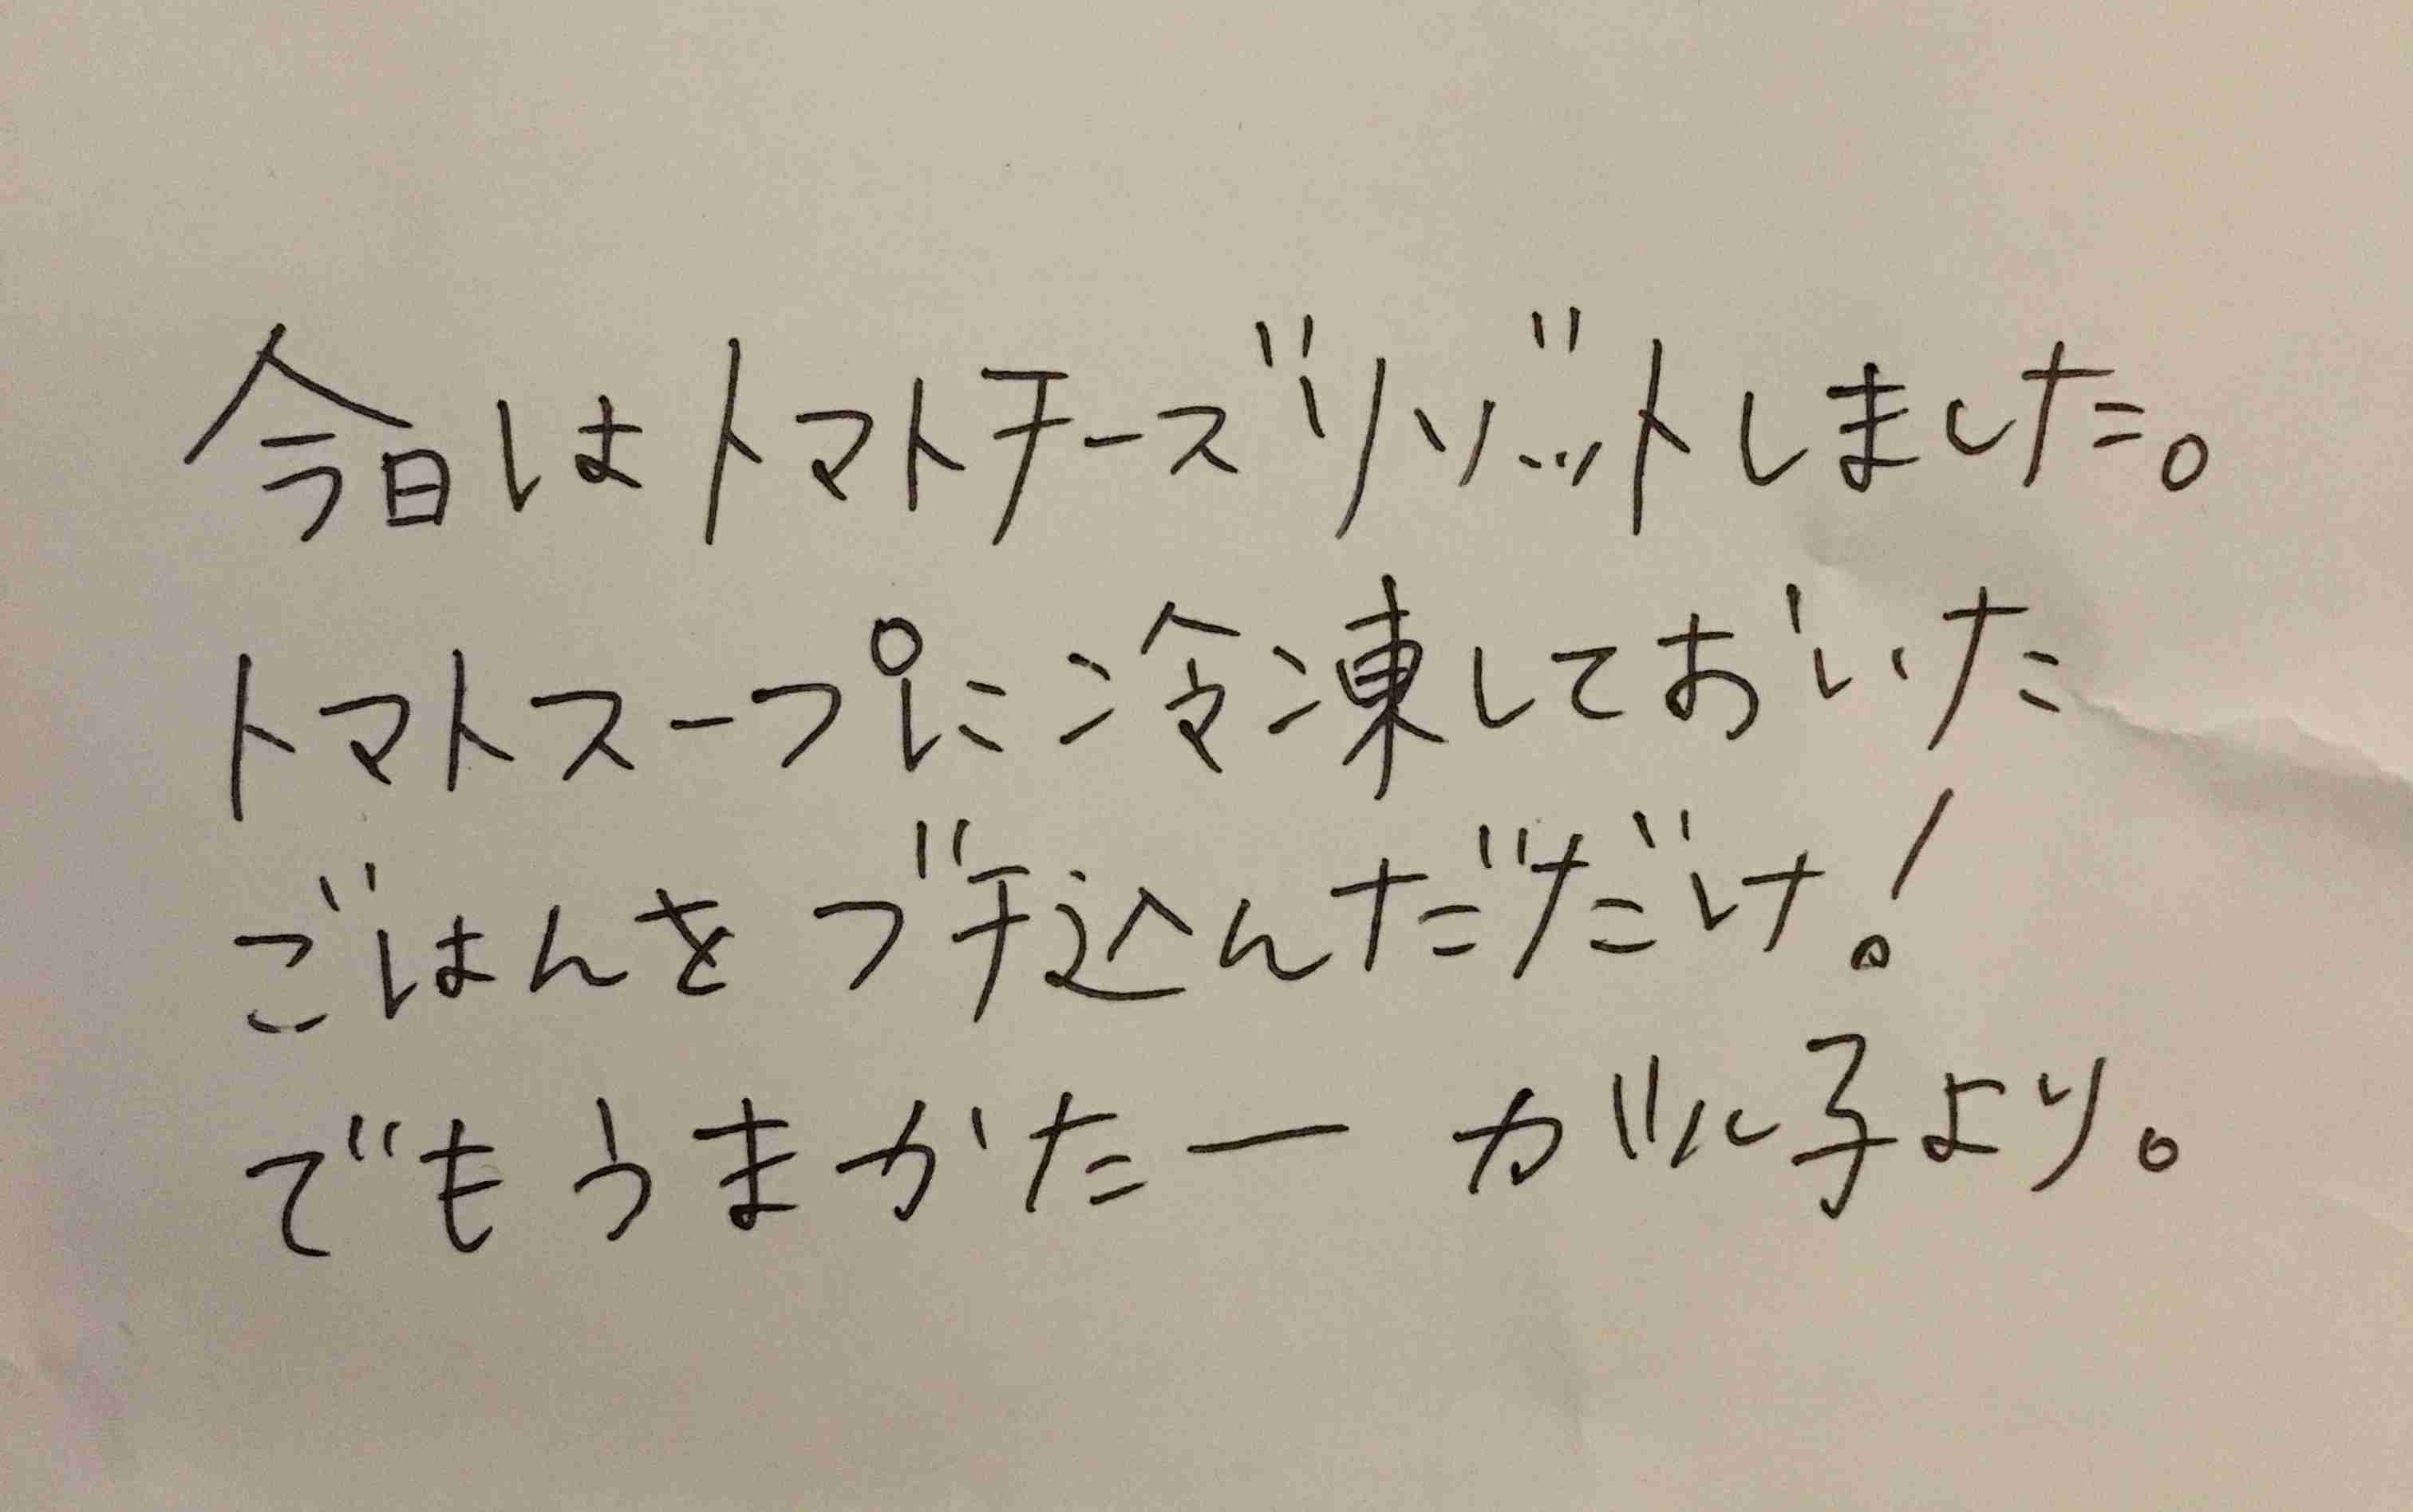 今日はトマトチーズリゾットしました。
トマトスープに冷凍しておいた
ごはんをブチ込んだだけ!
でもうまかたー ガル子より。